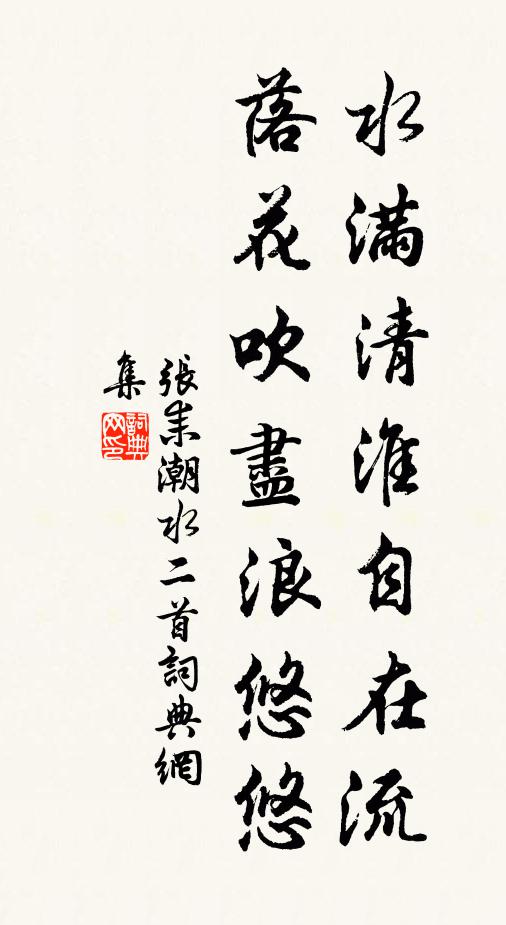 水滿清淮自在流
落花吹盡浪悠悠
張耒潮水二首詞典網
集
詞典網印